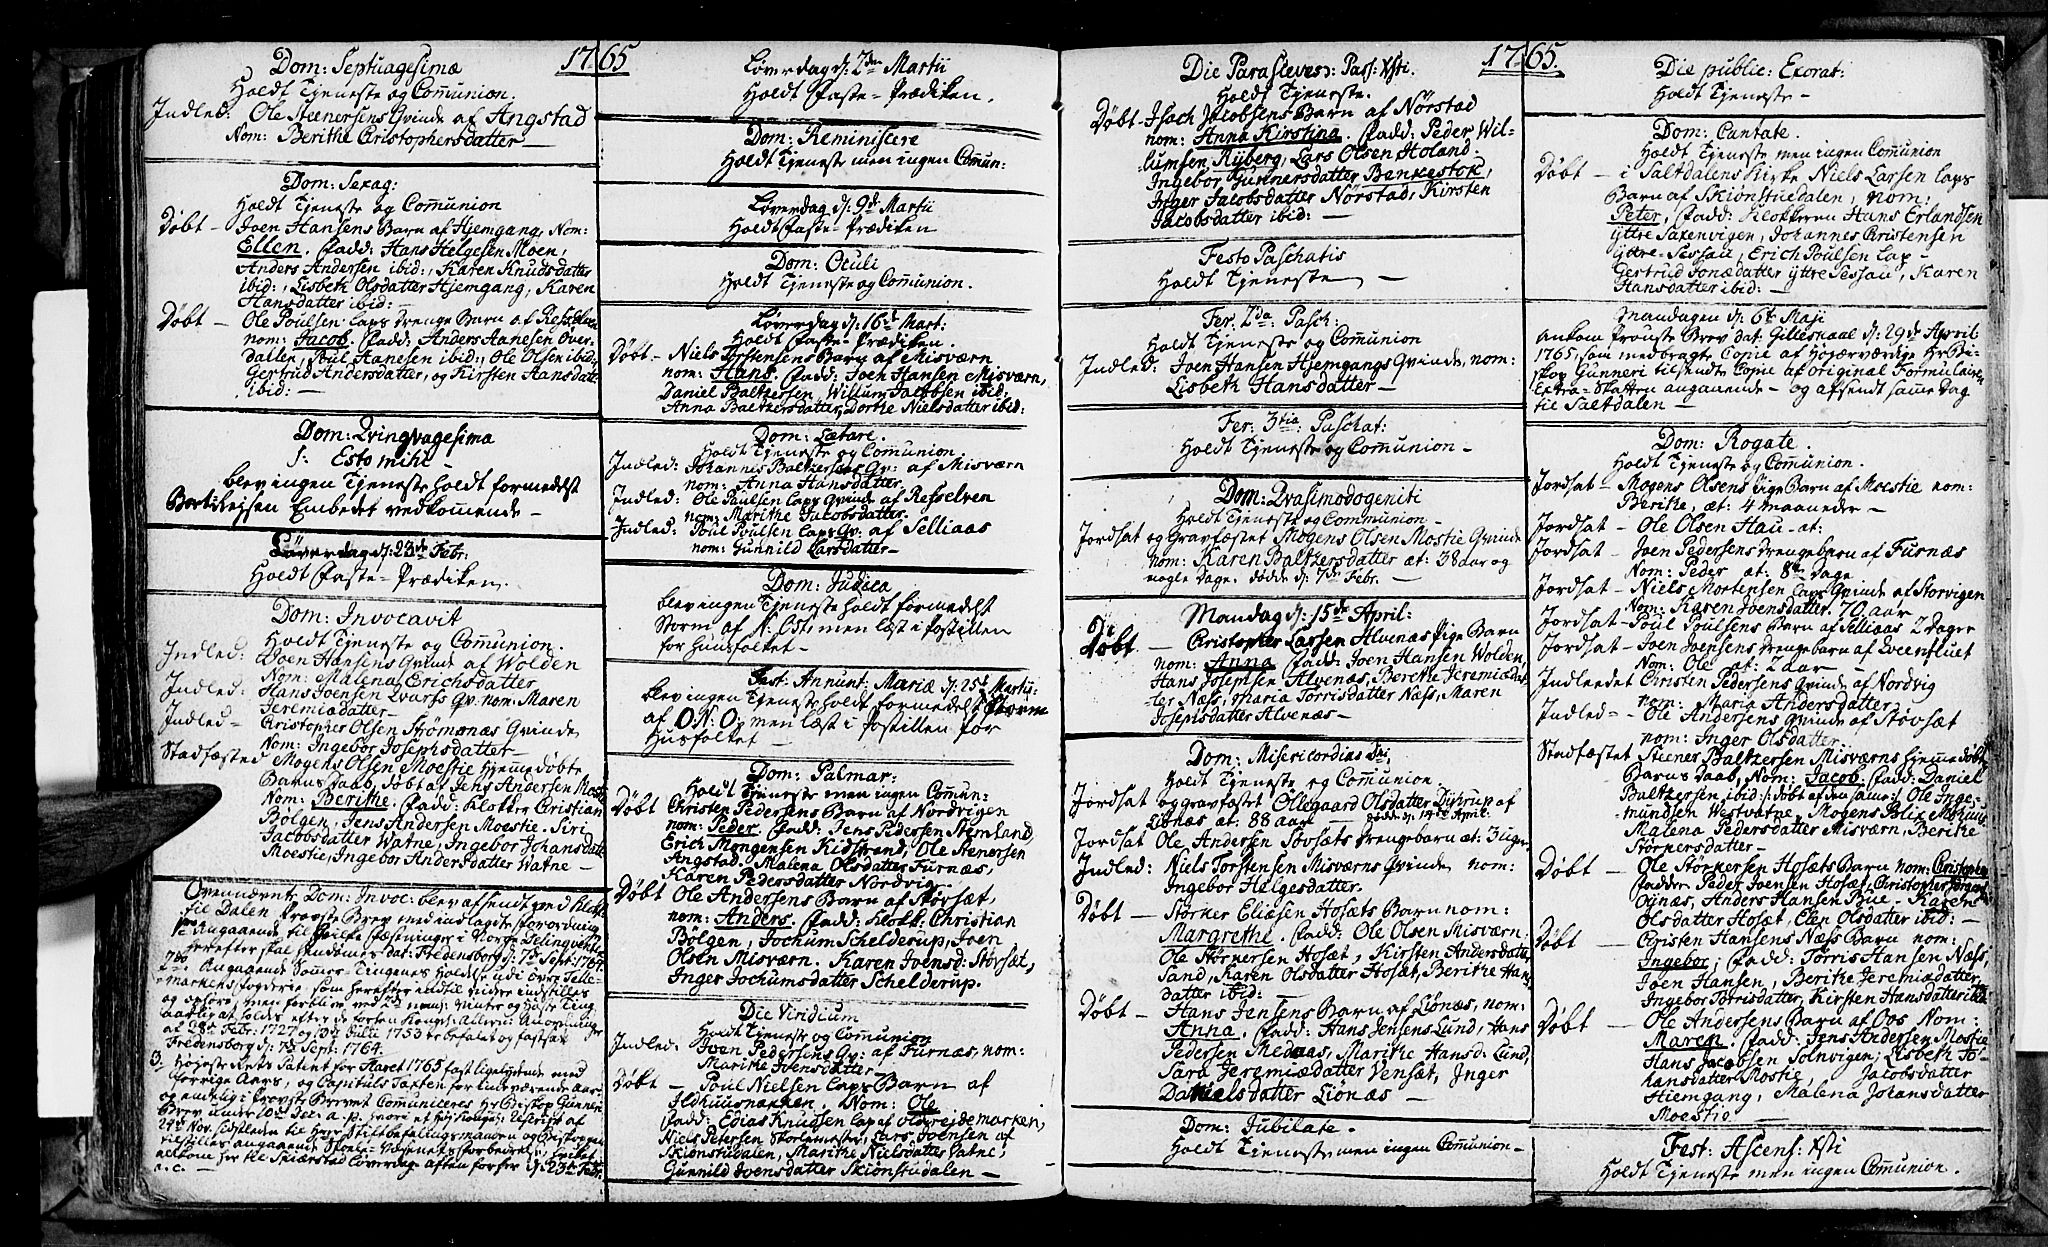 1765
Dom: Septuagesimæ
Holdt Tjeneste og Com̄union.
Indled: Ole Steenersens Qvinde af Angstad
Nom: Berithe Cristophersdatter —
Dom: Sexag:
Holdt Tjeneste og Com̄union
Døbt — Joen Hansens Barn af Hjemgang, Nom:
Ellen. Fadd: Hans Helgesen Moen,
Anders Andersen ibid:, Karen Knudsdatter
ibid:, Lisbeth Olsdatter Hjemgang, Karen
Hansdatter ibid: —
Døbt — Ole Poulsen Laps Drenge Barn af
nom: Jacob. Fadd: Anders Hanesen Over-
dallen, Poul Hanesen ibid:, Ole Olsen ibid:
Gertrud Andersdatter, og Kirsten Hansdatter
ibid: —
Dom: Qvingvagesima
s: Esto mihi —
blev ingen Tjeneste holdt formedelst
Embedet vedkommende —
Løverdag d: 23de Febr:
Holdt Faste-Prædiken.
Dom: Invocavit
Holdt Tjeneste og Com̄union.
Indled: Joen Hansens Qvinde af Wolden
Nom: Malena Erichsdatter
Indled: Hans Joensen Qvarss Qv: nom: Maren
Jeremiædatter —
Indled — Cristopher Olsen Strömænæs Qvinde
Nom: Ingebor Josephsdatter —
Stadfæsted Mogens Olsen Moestie Hjemme døbte
Barns Daab, døbt af Jens Andersen Moestie
Nom: Berithe: Fadd: Klokker Cristian
Bölgen, Jens Andersen Moestie, Siri
Jacobsdatter Watne, Ingebor Johansdatter
Moestie, Ingebor Andersdatter Watne —
Ovennævnte Dom: Invoc: blev afsendt med
til Dalen Provste Brev med indlagde forordning
1o Angaaende til hvilke Fæstninger i Norge Delinqventer
herefter skal hendømes dat: Fredensborg d: 7de Sept: 1764.
2do Angaaende Tingenes Holdelse udi øvre Telle-
markens fogderie, som herefter indtil videre indstilles
og ophøre, men forblive ved 2de nemlig: Winter og Høste Ting
aarlig at holdes efter de forhen Kongel: Allern: Anordninger
af 28de Febr: 1727 og Julii 1753 er befalet og fastsat
Fredensborg d: 7de Sept: 1764.
3o Højeste Rets Patent for Aaret 1765 fast ligelydende med
forrige Aars, og Capituls Taxten for
og endelig i Provste Brevet Comuniceres Hr Biskop Gunneri
Brev under 10de Dec: a. p. hvori et Høj Kongel: Rescript af
24de Nov: sidstleden til Herr Stiftbefalingsmanden og Bispen
angaaende Skole-Wæsenets forbedrelse, hvilket
alt kom her til Skiærstad Løverdags aften forhen d: 23de Febr:
a. c. —
Løverdag d: 2den Martii
Holdt Faste-Prædiken.
Dom: Reminiscere
Holdt Tjeneste men ingen Com̄un:
Løverdag d: 9de Martii
Holdt Faste-Prædiken
Dom: Oculi
Holdt Tjeneste og Com̄union.
Løverdag d: 16de Mart:
Holdt Faste-Prædiken.
Døbt — Niels Torstensens Barn af Misværn
nom: Hans. Fadd: Joen Hansen Misværn,
Daniel Baltzersen, Willum Jacobsen ibid:
Anna Baltzersdatter, Dorthe Nielsdatter ibid:
Dom: Lætare.
Holdt Tjeneste og Com̄union.
Indled: Johannes Baltzersens Qv: af Misværn
nom: Anna Hansdatter.
Indled: Ole Poulsen Laps Qvinde af Resselven
nom: Marithe Jacobsdatter.
Indled: Poul Poulsen Laps Qv: af Selliaas
nom: Gunnild Larsdatter —
Dom: Judica
blev ingen Tjeneste holdt formedelst
Storm af N: Ost, men læst i Postillen
for Huusfolket —
Fest: Annunt: Mariæ d: 25de Martii:
blev ingen Tjeneste holdt formedelst Storm
af O. N. O; men læst i Postillen for
Husfolket —
Dom: Palmar:
Holdt Tjeneste men ingen Com̄un:
Døbt Christen Pedersens Barn af Nordvigen
nom: Peder. Fadd: Jens Pedersen Stemland,
Erich Mongensen Kidstrand, Ole Stenersen
Angstad. Malena Olsdatter Furnæs,
Karen Pedersdatter Nordvig.
Døbt Ole Andersens Barn af Störsæt,
nom: Anders. Fadd: Klokk: Christian
Bölgen, Jochum Schelderup, Joen
Olsen Misværn. Karen Joensd: Störsæt,
Inger Jochumsdatter Schelderup.
Die Viridium
Holdt Tjeneste og Com̄union
Indled: Joen Pedersens Qv: af Furnæs, nom:
Marithe Ivensdatter —
Døbt — Poul Nielsen Laps Barn af
Ildhuusnakken. Nom: Ole
Fadd: Edias Knudsen Lap af Oldereidemarken,
Niels Petersen Storlemester, Lars Joensen af
Skionstudalen, Marithe Nielsdatter Vatne,
Gunnild Ivensdatter Skionstudalen —
1765.
Die Parasceves: Pass: Xsti.
Holdt Tjeneste.
Døbt Isach Jacobsens Barn af Nörstad
nom: Anna Kirstina. Fadd: Peder Wil-
lumsen Ryberg, Lars Olsen Holand.
Ingebor Gunnersdatter Benkestok,
Inger Jacobsdatter Nörstad, Kirsten
Jacobsdatter ibid: —
Festo Paschatis
Holdt Tjeneste —
Fer: 2da: Pasch:
Holdt Tjeneste og Com̄union
Indled: Joen Hansen Hjemgangs Qvinde, nom:
Lisbeth Hansdatter —
Fer: 3tia: Paschat:
Holdt Tjeneste og Com̄union —
Dom: Qvasimodogeniti
Holdt Tjeneste og Communion —
Jordsat og Gravfæstet Mogens Olsen Mostie Qvinde
nom: Karen Baltzersdatter æt: 38 aar og
nogle Dage. døde d: 7de Febr: —
Mandag d: 15de April:
Døbt — Cristopher Larsen Alvenæs Pige Barn
nom: Anna Fadd: Joen Hansen Wolden,
Hans Josephsen Alvenæs, Berithe Jeremiædat-
ter Næss, Maria Torrisdatter Næss, Maren
Josephsdatter Alvenæs —
Dom: Misericordias Dni,
Holdt Tjeneste og Com̄union
Jordsat og gravfæstet Ollegaard Olsdatter Distrup af
Liönæs æt: 88 aar — døde d: 14de April.
Jordsat Ole Andersen Sövsæts Drengebarn æt: 3 uger
Indled: Niels Torstensen Misværns Qvinde nom:
Ingebor Helgesdatter.
Døbt — Störker Eliæsen Hosæts Barn nom:
Margrethe. Fadd: Ole Olsen Misværn.
Ole Störkersen Hosæt, Kirsten Andersdatter
Sand, Karen Olsdatter Hosæt, Berithe Han-
datter ibid: —
Døbt — Hans Jensens Barn af Liönæs, nom:
Anna. Fadd: Hans Jensens Lund, Hans
Pedersen Mednaas, Marithe Hansd: Lund,
Sara Jeremiædatter Vensæt, Inger
Danielsdatter Liönæs —
Dom: Jubilate.
Holdt Tjeneste, men ingen Com̄union —
Die public: Exorat:
Holdt Tjeneste —
Dom: Cantate.
Holdt Tjeneste men ingen Com̄union
Døbt — i Saltdalens Kirke Niels Larsen Laps
Barn af Skiönstuedalen, nom:
Peter, Fadd: Klokkeren Hans Erlandsen
yttre Saxenvigen, Johannes Cristensen
yttre Sessau, Erich Poulsen Lap —
Gertrud Jonædatter yttre Sessau, Karen
Hansdatter ibid: —
Mandagen d: 6te Maji
Ankom Provste Brev dat: Gilleskaal d: 29de April
1765, som medbragte Copie af Højærværdige Hr Bi-
skop Gunneri tilsendte Copie af original Formularen
Extra-Skatten angaaende — og afsendt samme Dag
til Saltdalen —
Dom: Rogate.
Holdt Tjeneste og Com̄union.
Jordsat — Mogens Olsens Pige Barn af Moestie nom:
Berithe, æt: 4 maaneder —
Jordsat — Ole Olsen Hau — æt:
Jordsat — Joen Pedersens Drengebarn af Furnæs
Nom: Peder æt: 8te Dage
Jordsat — Niels Mortensen Laps Qvinde af Storvigen
Nom: Karen Joensdatter. 70 aar
Jordsat — Poul Poulsens Barn af Selliaas 2 Dager
Jordsat — Joen Joensens Drengebarn af Qvenfluet
Nom: Ole æt: 2 aar —
Indleedet Christen Pedersens Qvinde af Nordvig
nom: Maria Andersdatter
Indled — Ole Andersens Qvinde af Störsæt
nom: Inger Olsdatter
Stadfæstet Steener Baltzersen Misværns Hjemme døbte
Barns Daab, Nom: Jacob. Fadd: Daniel
Baltzersen ibid: /: døbt af den samme :/ Ole Inge-
mundsen Westvatne, Mogens Blix
Malena Pedersdatter Misværn, Berithe
Störkersdatter —
Døbt — Ole Störkersen Hosæts Barn nom: Cristopher
Fadder Peder Joensen Hosæt, Cristopher
Öinæs, Anders Hansen Bue — Karen
Olsdatter Hosæt, Elen Olsdatter ibid: —
Døbt — Cristen Hansens Næss Barn nom:
Ingebor; Fadd: Torris Hansen Næss,
Joen Hansen, Berithe Jeremiædatter,
Ingebor Torrisdatter, Kirsten Hansdatter ibid:
Døbt — Ole Andersens Barn af Oos Nom:
Maren. Fadd: Jens Andersen Mostie
Hans Jacobsen Solnvigen, Lisbeth Jo-
hansdatter Mostie, Jacobsdatter
Hiemgang, Malena Johansdatter
Moestie —
Fest: Ascens: Xsti
Holdt Tjeneste men ingen Com̄union.